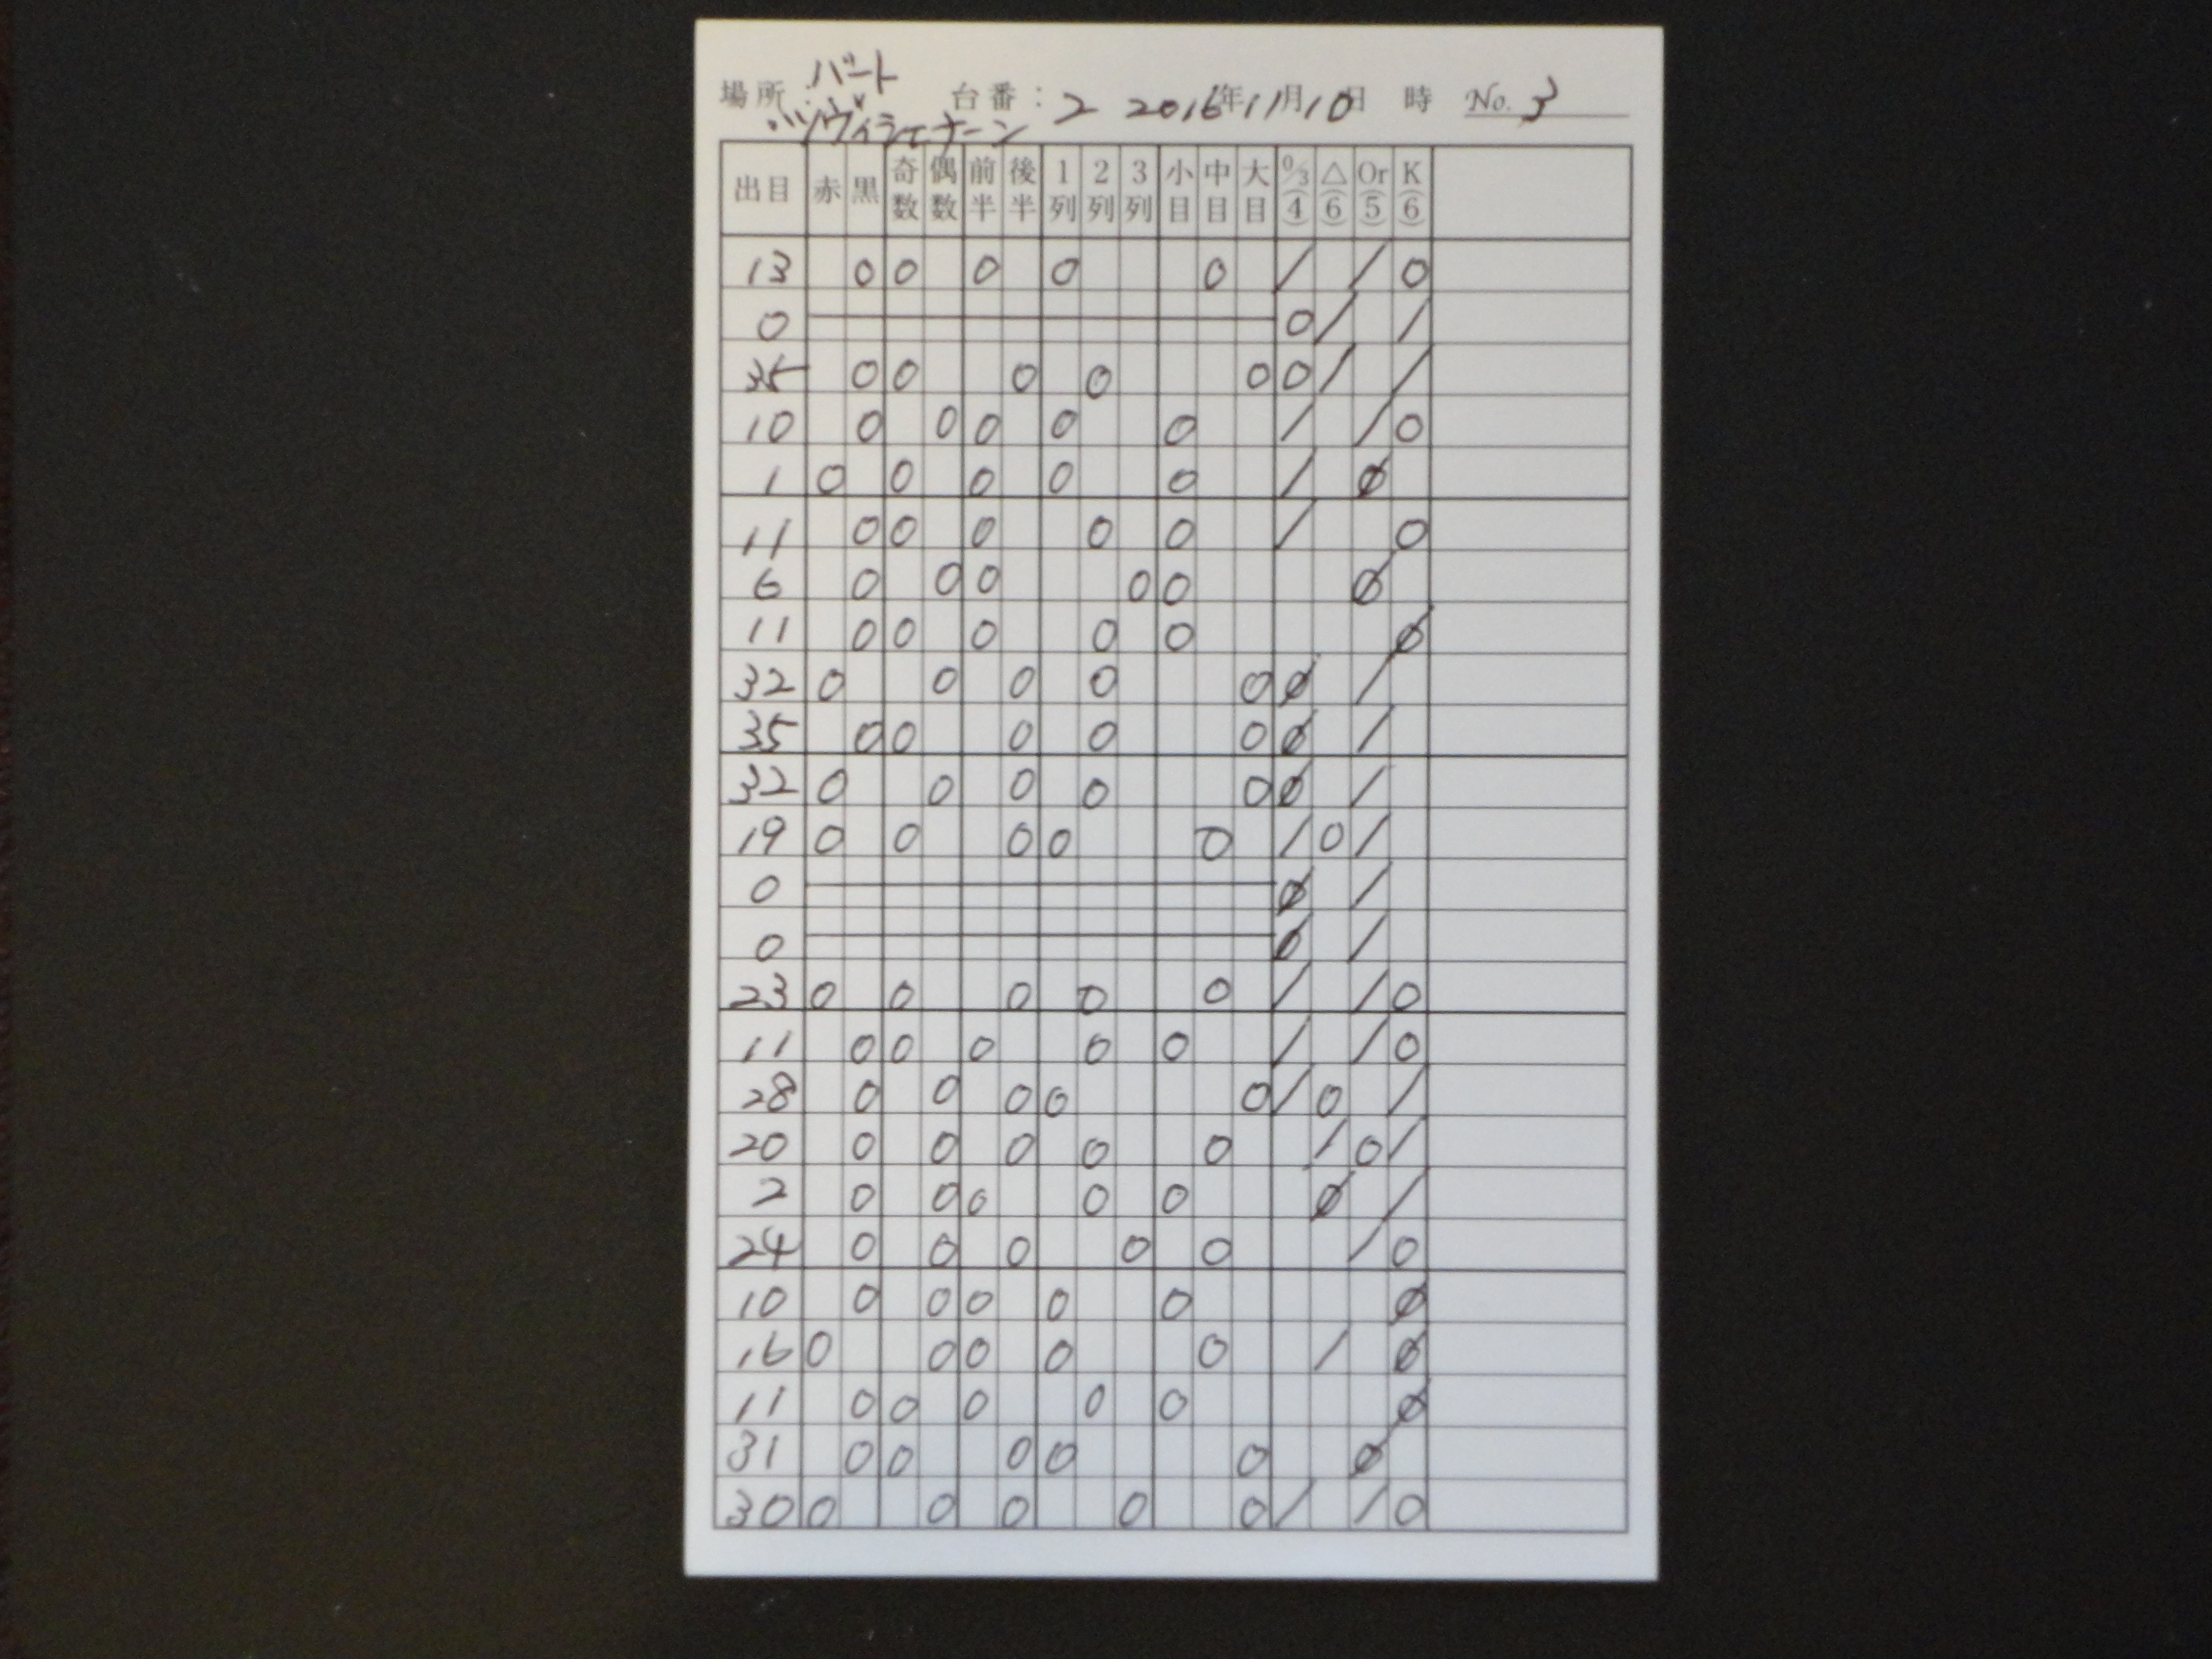 場所 バート 台番：2 2016年11月10日 時 No. 3
バッヴィシェナーン
出目 赤 黒 奇数 偶数 前半 後半 1列 2列 3列 小目 中目 大目 0/3(4) △(6) Or(5) K(6)
13 0 0 0 0 0 / / 0
0 0 / /
35 0 0 0 0 0 0 / /
10 0 0 0 0 0 / / 0
1 0 0 0 0 0 / Ø
11 0 0 0 0 0 / 0
6 0 0 0 0 0 Ø
11 0 0 0 0 0 Ø
32 0 0 0 0 0 Ø /
35 0 0 0 0 0 Ø /
32 0 0 0 0 0 Ø /
19 0 0 0 0 0 / 0 /
0 Ø /
0 Ø /
23 0 0 0 0 0 / / 0
11 0 0 0 0 0 / / 0
28 0 0 0 0 0 / 0 /
20 0 0 0 0 0 / 0 /
2 0 0 0 0 0 Ø /
24 0 0 0 0 0 / 0
10 0 0 0 0 0 Ø
16 0 0 0 0 0 / Ø
11 0 0 0 0 0 Ø
31 0 0 0 0 0 Ø
30 0 0 0 0 0 / / 0